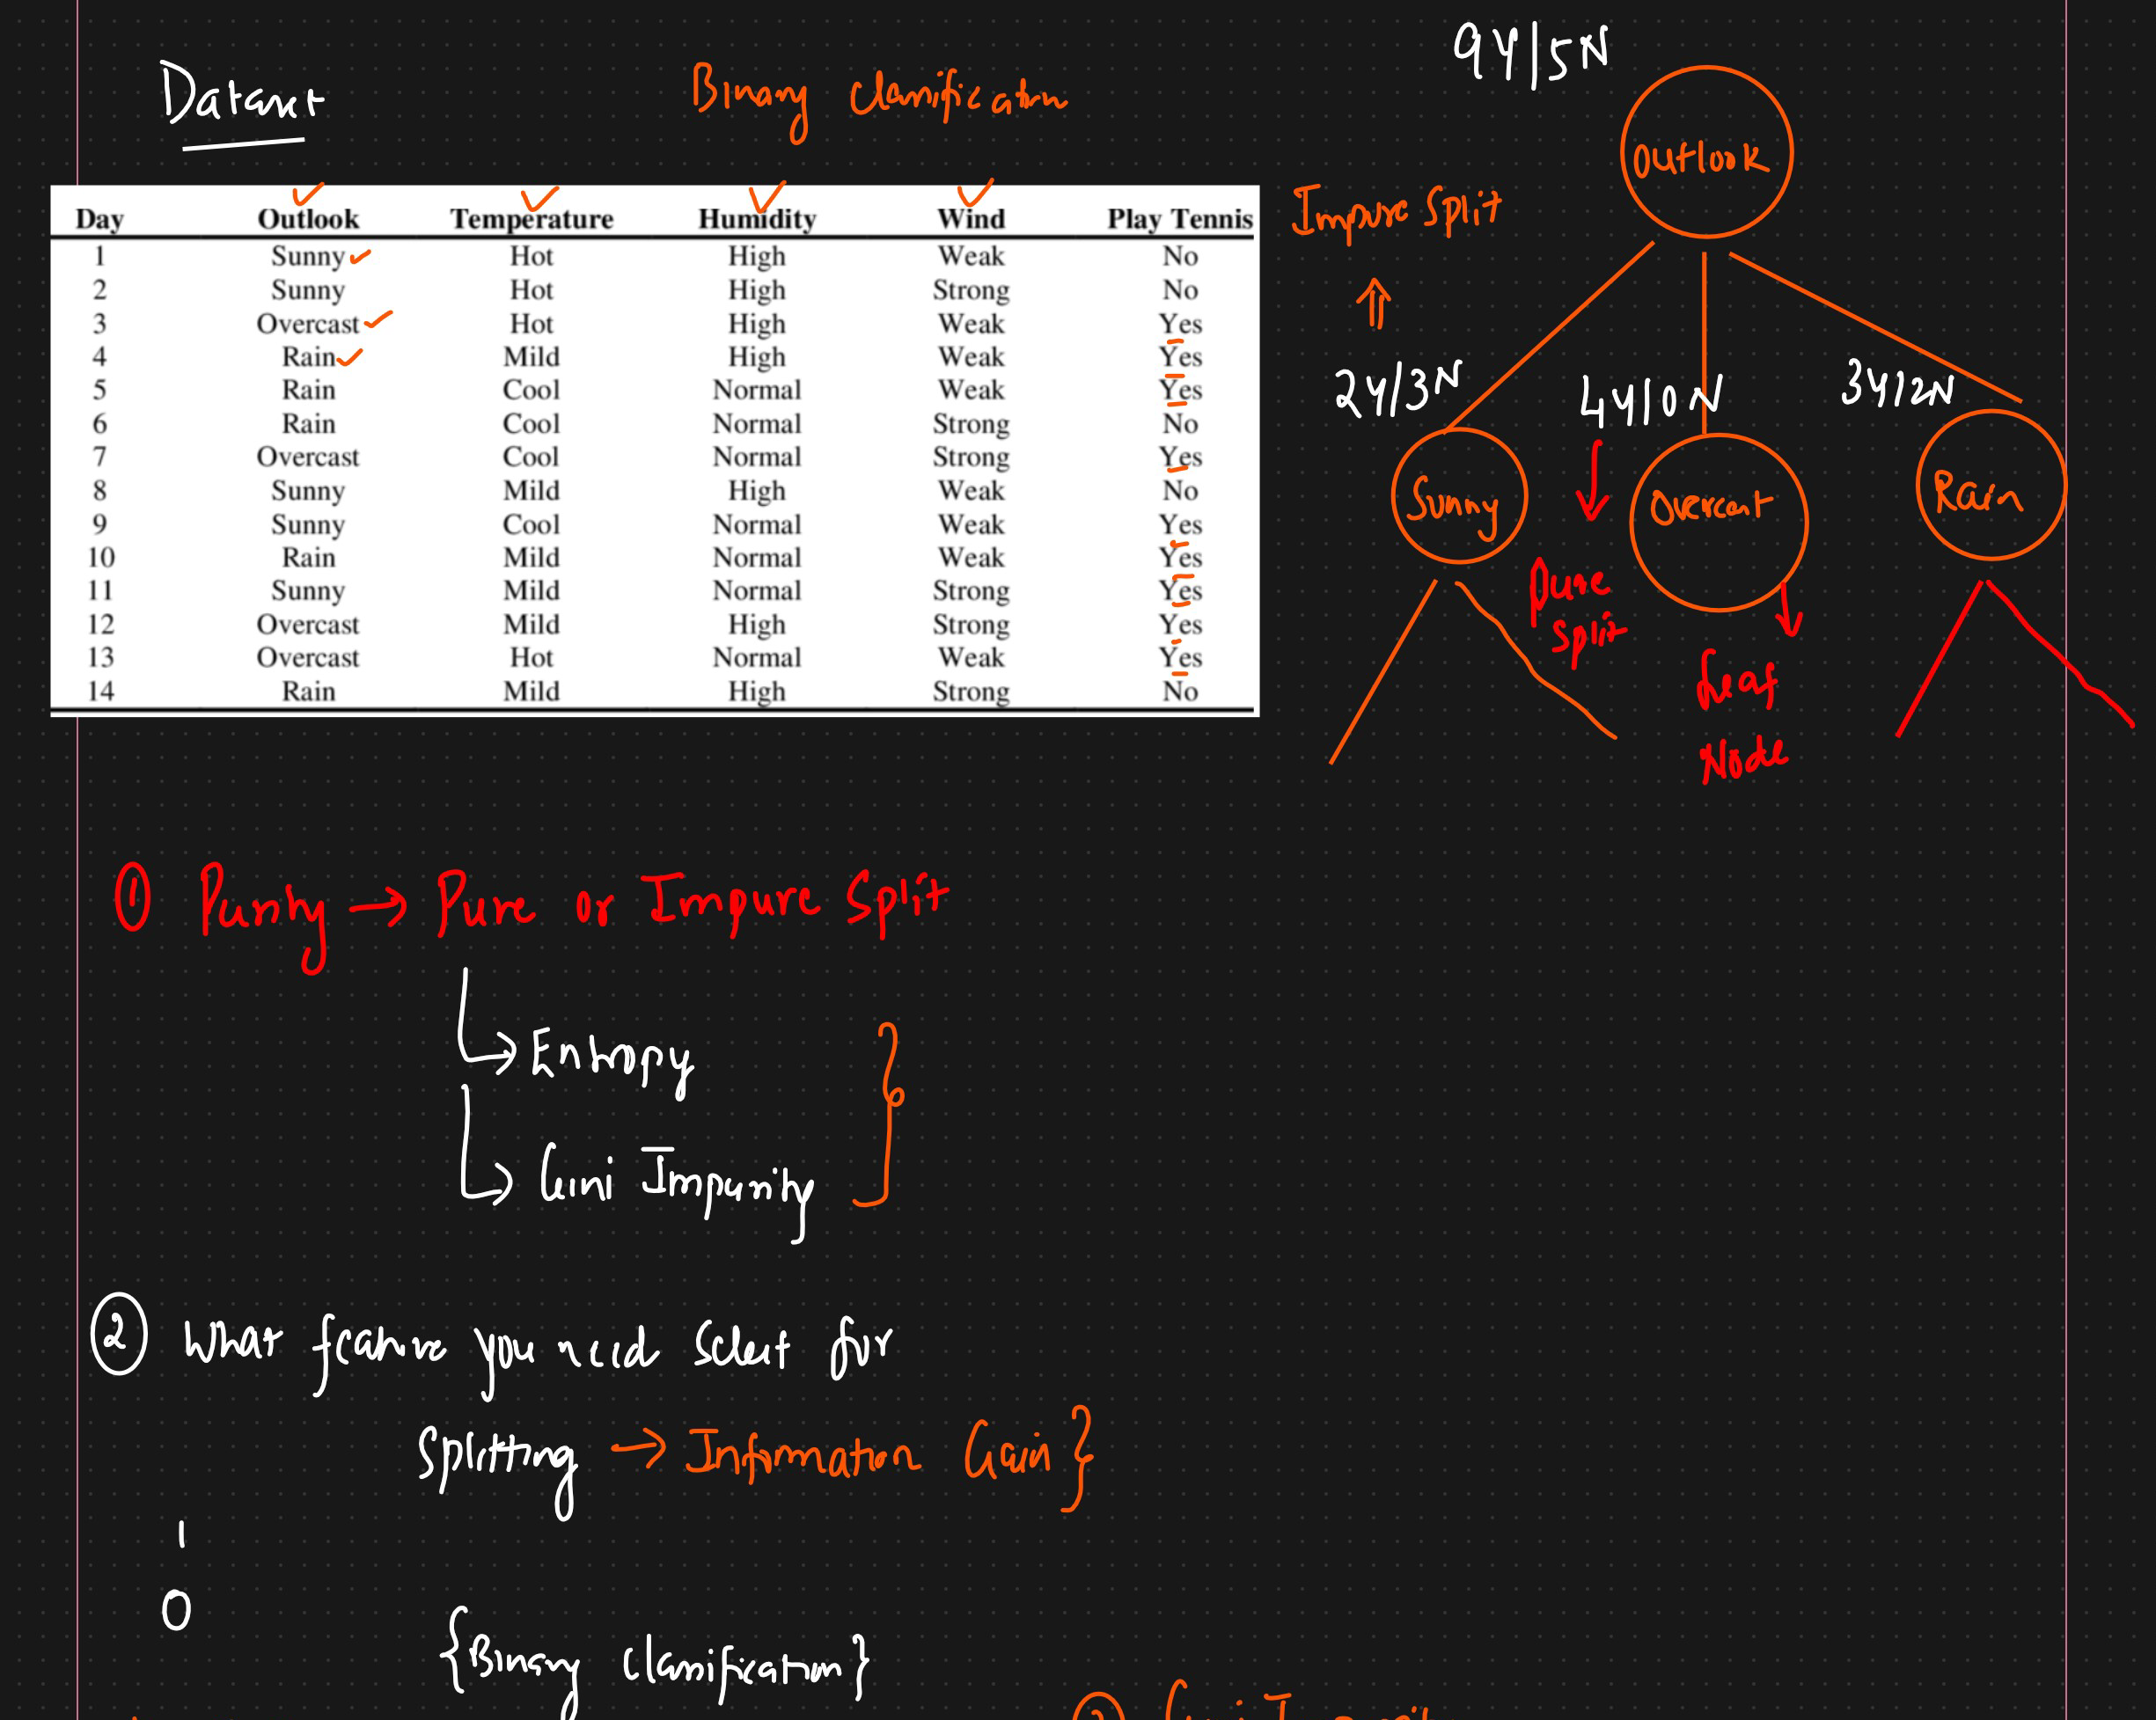 Dataset
Binary Classification
Day Outlook Temperature Humidity Wind Play Tennis
1 Sunny Hot High Weak No
2 Sunny Hot High Strong No
3 Overcast Hot High Weak Yes
4 Rain Mild High Weak Yes
5 Rain Cool Normal Weak Yes
6 Rain Cool Normal Strong No
7 Overcast Cool Normal Strong Yes
8 Sunny Mild High Weak No
9 Sunny Cool Normal Weak Yes
10 Rain Mild Normal Weak Yes
11 Sunny Mild Normal Strong Yes
12 Overcast Mild High Strong Yes
13 Overcast Hot Normal Weak Yes
14 Rain Mild High Strong No
9Y/5N
Outlook
Impure Split
⇑
2Y/3N
4Y/0N
3Y/2N
Sunny
Overcast
Rain
Pure
Split
Leaf
Node
① Purity → Pure or Impure Split
→ Entropy
→ Gini Impurity
② What feature you need select for
Splitting → Information Gain }
1
0
{Binary Classification}
Gini Impurity